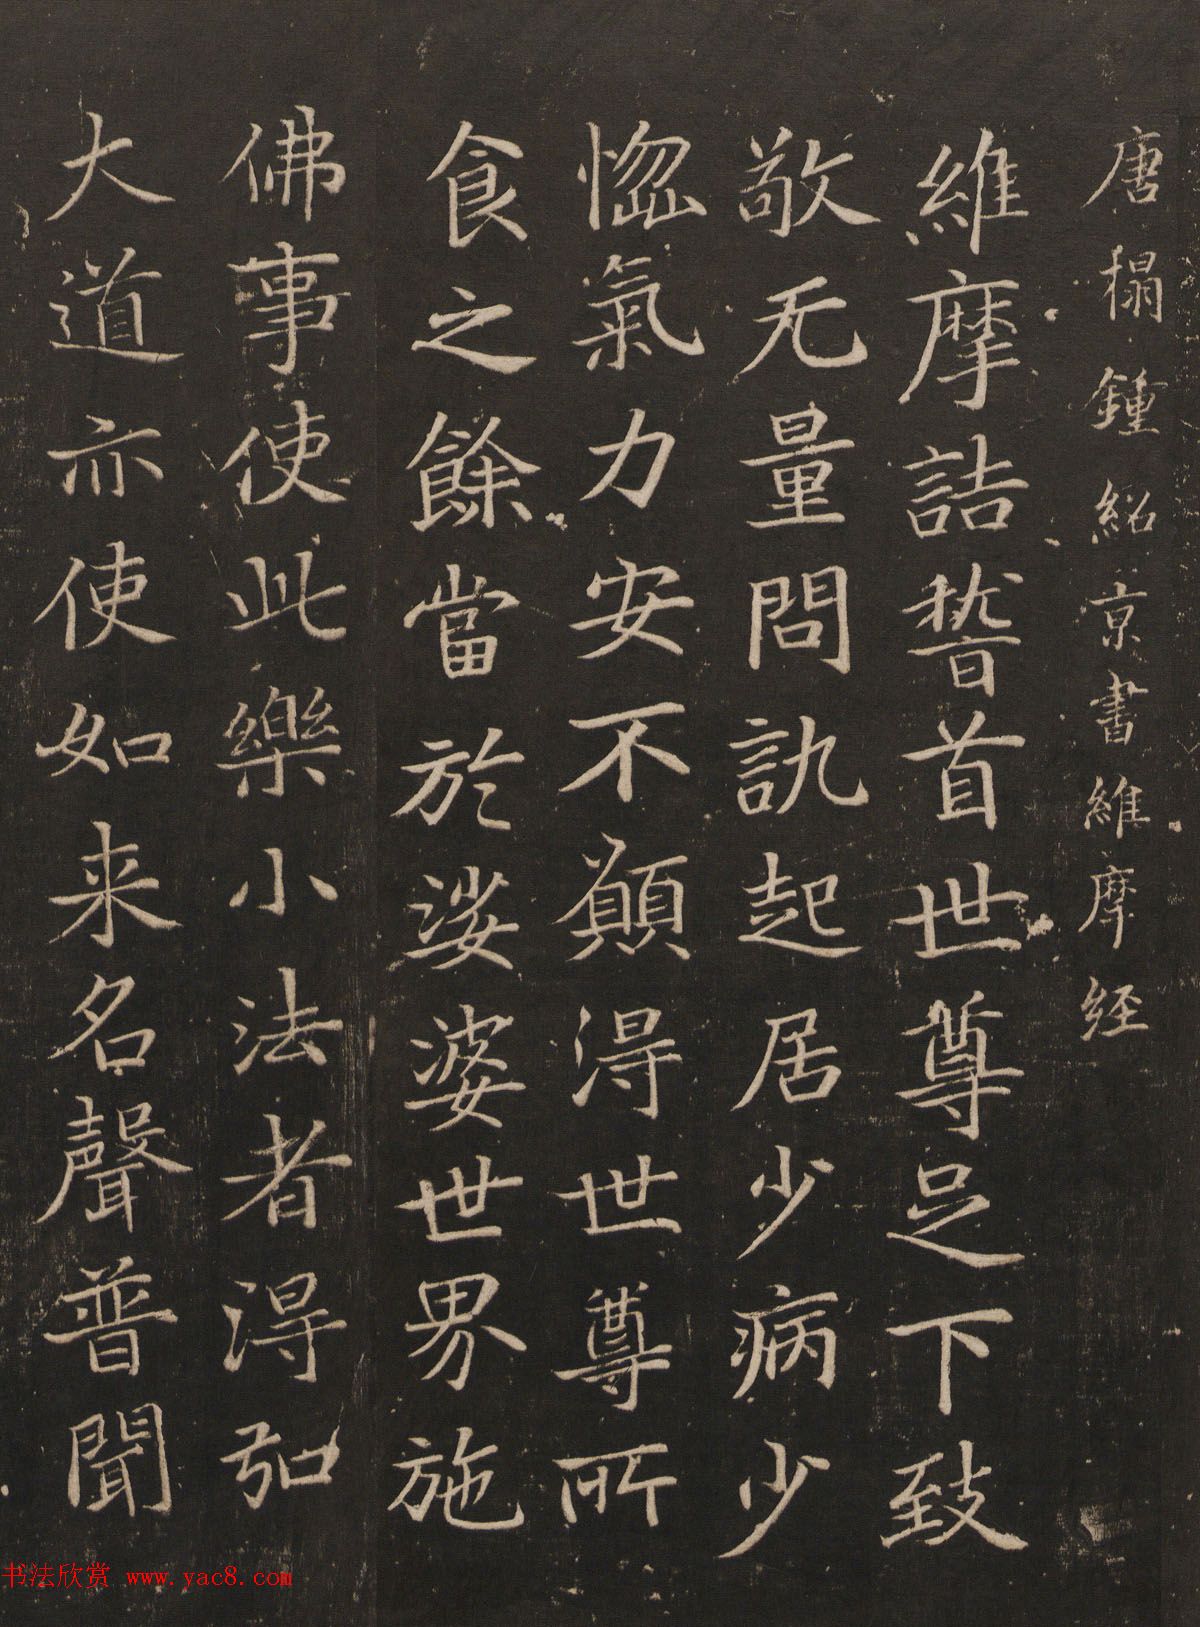 唐搨鍾紹京書維摩経
維摩詰稽首世尊足下致
敬无量問訊起居少病少
惱氣力安不願得世尊所
食之餘當於娑婆世界施
佛事使此樂小法者得弘
大道亦使如来名聲普聞
书法欣赏 www.yac8.com